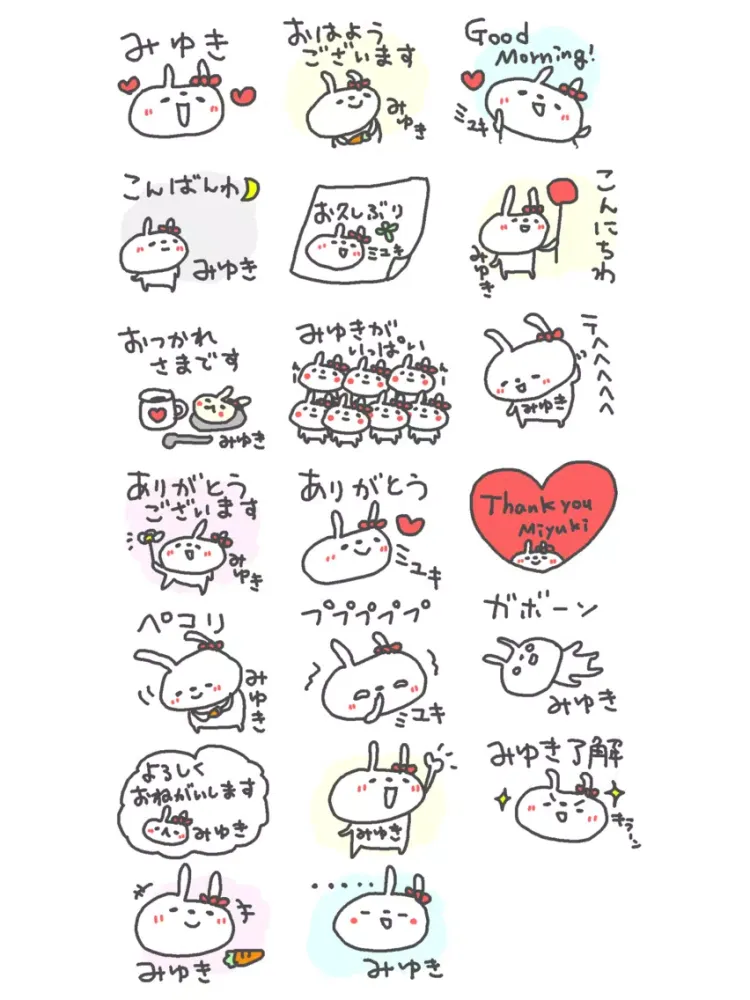 みゆき
おはよう
ございます
みゆき
Good
Morning!
ミユキ
こんばんわ
みゆき
お久しぶり
ミユキ
こんにちわ
みゆき
おつかれ
さまです
みゆき
みゆきが
いっぱい
テヘヘヘヘヘ
みゆき
ありがとう
ございます
みゆき
ありがとう
ミユキ
Thank you
Miyuki
ペコリ
みゆき
プププププ
ミユキ
ガボーン
みゆき
よろしく
おねがいします
みゆき
みゆき
みゆき了解
キラーン
みゆき
‥‥‥
みゆき